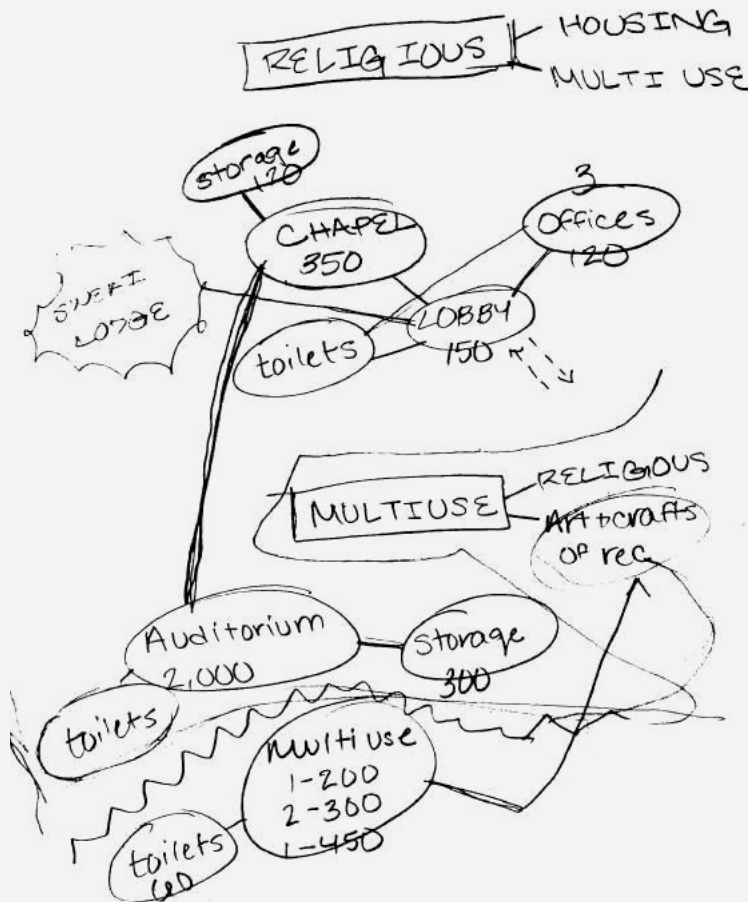 RELIGIOUS
HOUSING
MULTI USE
storage
120
CHAPEL
350
3
Offices
120
SWEAT
LODGE
LOBBY
150
toilets
MULTIUSE
RELIGIOUS
Art + crafts
or rec
Auditorium
2,000
storage
300
toilets
multiuse
1-200
2-300
1-450
toilets
60